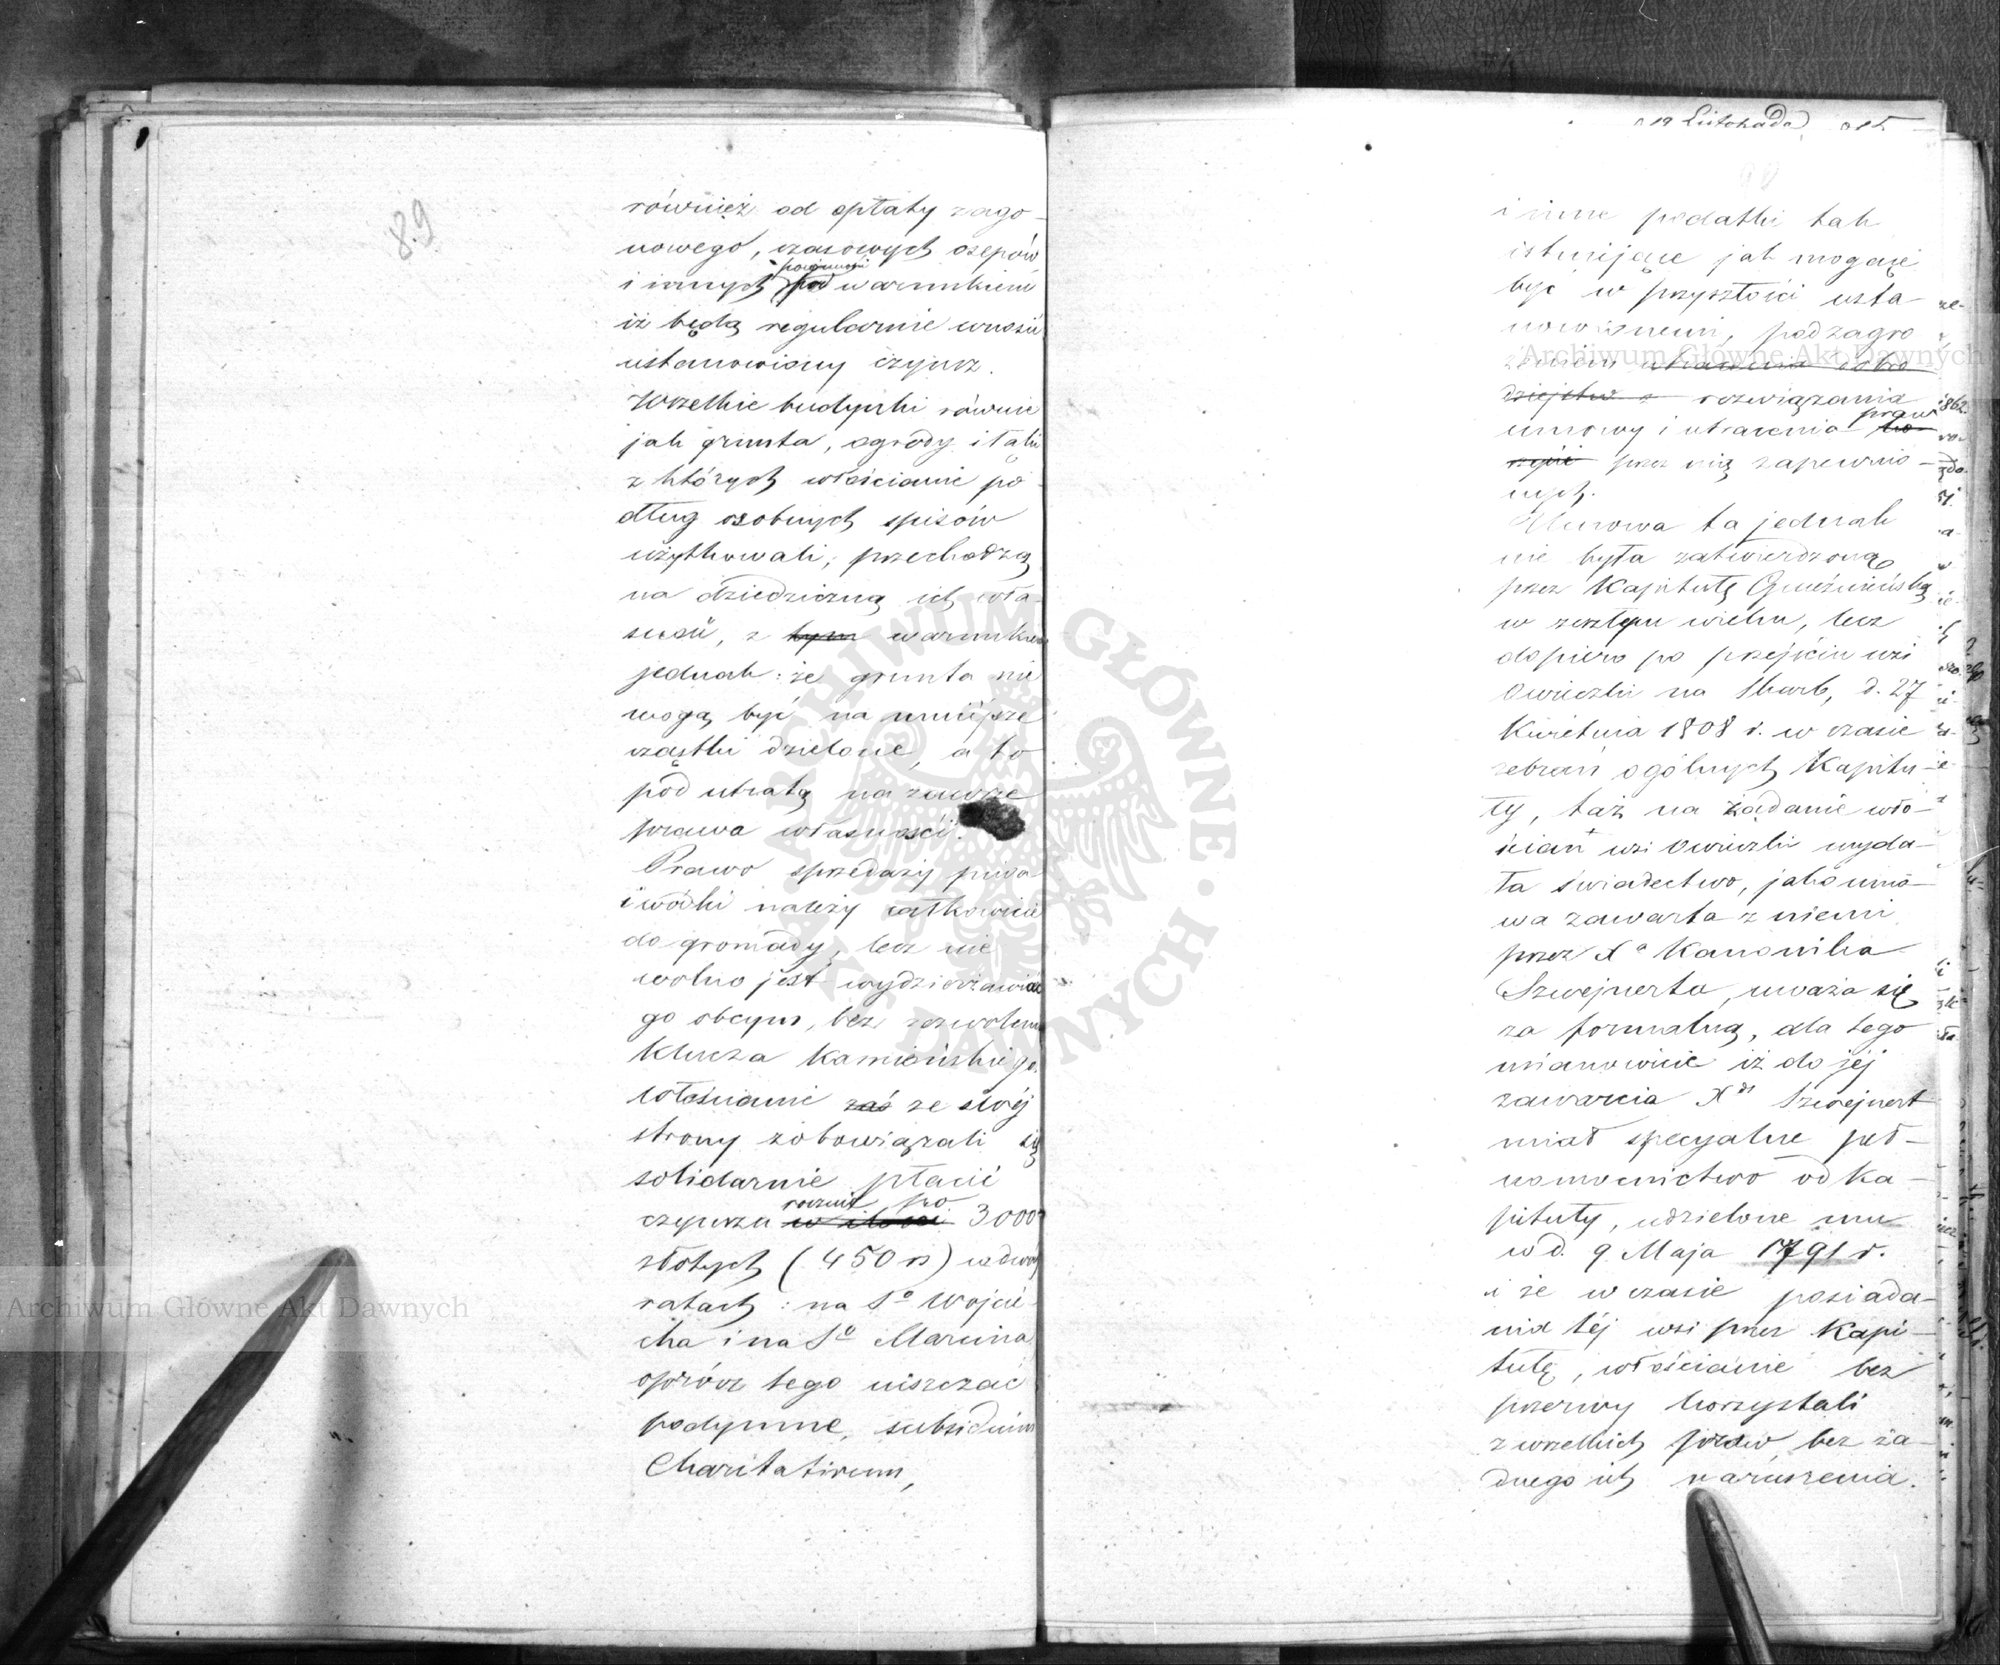 89
również od opłaty zago-
nowego, czasowych osepów
powinności
i innych pod warunkiem
iż będą regularnie wnosić
ustanowiony czynsz.
Wszelkie budynki równie
jak grunta, ogrody i łąki
z których włościanie po-
dług osobnych spisów
użytkowali, przechodzą
na dziedziczną ich wła-
sność, z tym warunkiem
jednak: że grunta nie
mogą być na mniejsze
cząstki dzielone, a to
pod utratą na zawsze
prawa własności.
Prawo sprzedaży piwa
i wódki należy całkowicie
do gromady, lecz nie
wolno jest wydzierżawiać
go obcym, bez zezwolenia
Klucza Kamieńskiego.
Włościanie zaś ze swéj
strony zobowiązali się
solidarnie płacić
rocznie po
czynszu w ilości 3000
złotych (450 rs) w dwóch
ratach: na Sº Wojcie-
cha i na Sº Marcina
oprócz tego uiszczać
podymne, subsidium
Charitativum,
19 Listopada
i inne podatki tak
istniejące jak mogące
być w przyszłości usta-
nowionemi, pod zagro-
żeniem utracenia dobro
dziejstw z rozwiązania
praw
umowy i utracenia ko-
rzyści przez nią zapewnio-
nych.
Umowa ta jednak
nie była zatwierdzoną
przez Kapitułę Gnieźnieńską
w zeszłym wieku, lecz
dopiero po przejściu wsi
Owieczki na Skarb, d. 27
Kwietnia 1808 r. w czasie
zebrań ogólnych Kapitu-
ły, taż na żądanie wło-
ścian wsi Owieczki wyda-
ła świadectwo, jako umo-
wa zawarta z niemi
przez Xª Kanonika
Szwejnerta, uważa się
za formalną, dla tego
mianowicie iż do jéj
zawarcia Xdz Szwejnert
miał specyalne peł-
nomocnictwo od Ka-
pituły, udzielone mu
w d. 9 Maja 1791 r.
i że w czasie posiada-
nia téj wsi przez Kapi-
tułę, włościanie bez
przerwy korzystali
z wszelkich praw bez ża-
dnego ich naruszenia.
1862
Archiwum Główne Akt Dawnych
Archiwum Główne Akt Dawnych
ARCHIWUM GŁÓWNE AKT DAWNYCH